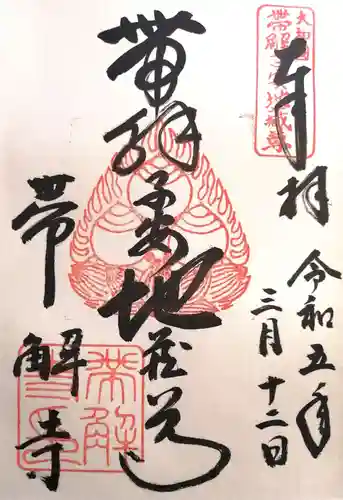 奉拝
令和五年
三月十二日
帯解子安地蔵尊
帯解寺
大和国
帯解子安地蔵尊
帯解